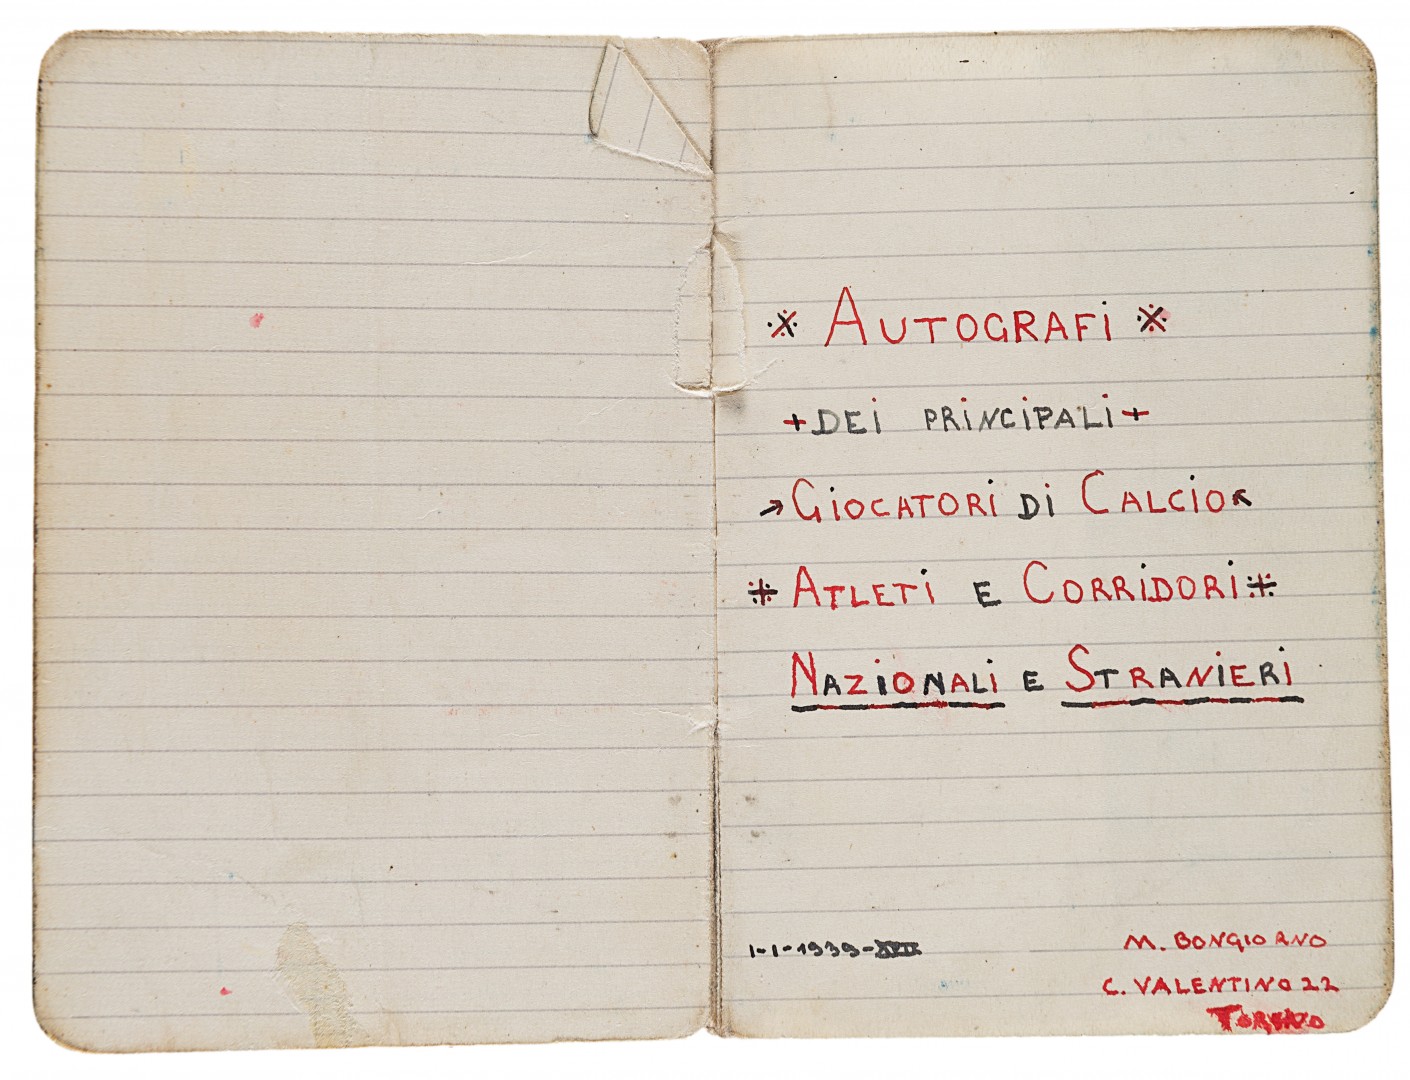 AUTOGRAFI
DEI PRINCIPALI
GIOCATORI DI CALCIO
ATLETI E CORRIDORI
NAZIONALI E STRANIERI
1-1-1939-XVII
M. BONGIORNO
C. VALENTINO 22
TORINO